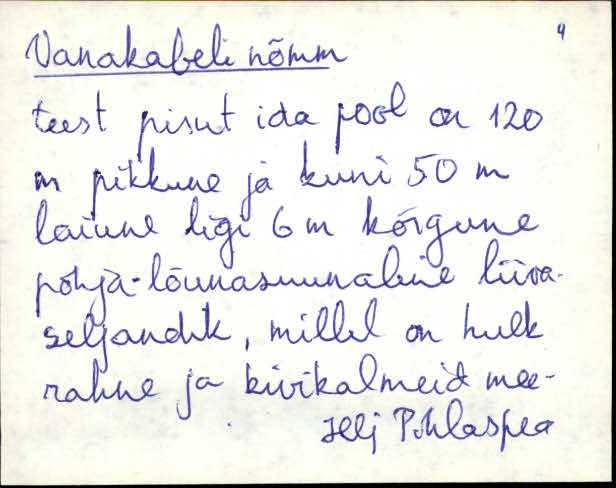 4
Vanakabeli nõmm
teest pisut ida pool on 120
m pikkune ja kuni 50 m
laiune ligi 6 m kõrgune
põhja-lõunasuunaline liiva-
seljandik, millel on hulk
rahne ja kivikalmeid mee-
Helj Põhlaspea